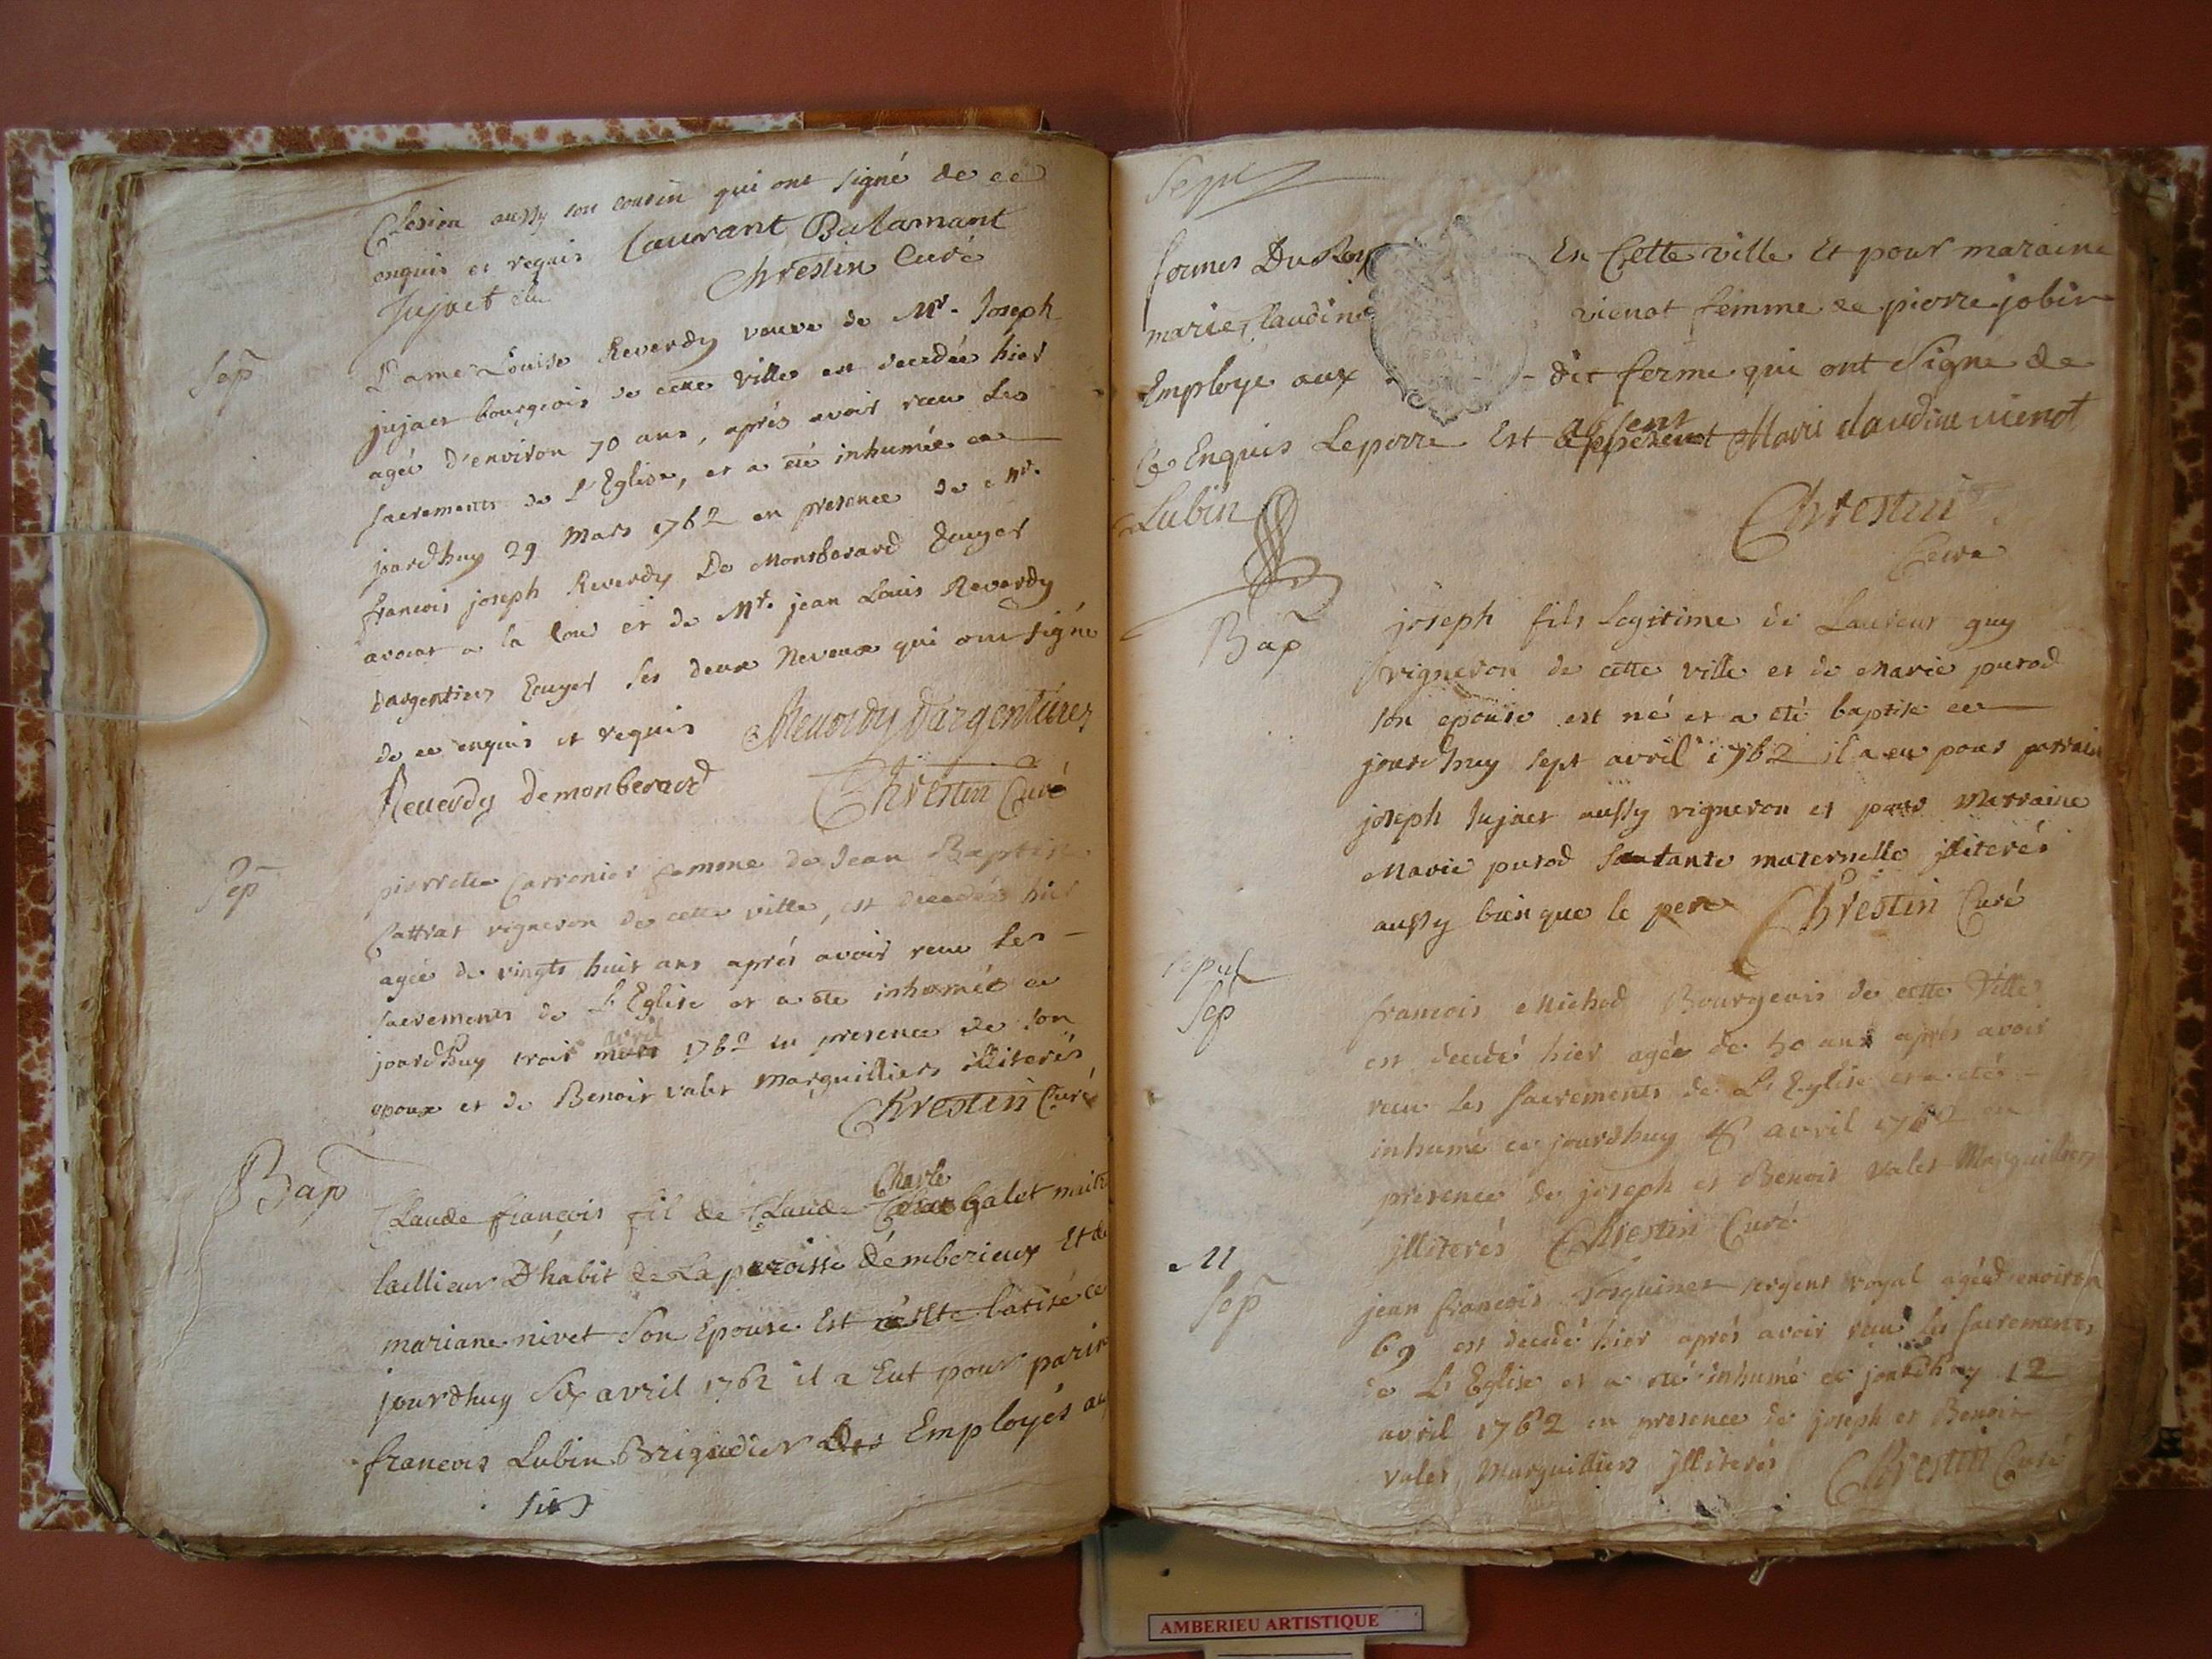 Closion aussy son cousin qui ont signé de ce
enquis et requis Laurant Balamant
Jujact Chrestin Curé
Sep
Dame Louise Reverdy veuve de Mr. Joseph
jujact bourgeois de cette ville est decedée hier
agée d'environ 70 ans, aprés avoir reçu les
sacrements de L'Eglise, et a été inhumée ce
jourdhuy 29 Mars 1762 en presence de Mr.
francois joseph Reverdy De Montberard Ecuyer
avocat a la Cour et de Mr. jean Louis Reverdy
dargentires Ecuyer ses deux Neveux qui ont signé
de ce enquis et requis Reverdy dargentires
Reverdy demonberard Chrestin Curé
Sep
pierrette Carronier femme de Jean Baptiste
Cattrat vigneron de cette ville, est decedée hier
agée de vingts huit ans aprés avoir reçu les
sacrements de L'Eglise et a été inhumée ce
avril
jourdhuy trois mars 1762 en presence de son
epoux et de Benoit valet Marguilliers illiterés
Chrestin Curé
Bap
Charle
Claude françois fil de Claude Galet maitre
taillieur D'habit de La paroisse d'emberieux Et de
mariane nivet Son Epouse Est né Ete batisé ce
jourdhuy Six avril 1762 il a Eut pour parin
francois Lubin Brigadier des Employés aux
Sepul
formes Du Roy En Cette ville Et pour maraine
marie Claudine vienot femme de pierre jobin
Employé aux dit ferme qui ont Signe de
absent
Ce Enquis Leperre Est Marie claudine vienot
Lubin
Chrestin
Cure
Bap
joseph fils legitime de Laurent guy
vigneron de cette ville et de Marie purod
son epouse est né et a été baptisé ce
jourdhuy sept avril 1762 il a eu pour parrain
joseph Jujact aussy vigneron et pour Marraine
Marie purod sa tante maternelle illiterés
aussy bien que le pere Chrestin Curé
sepul
Sep
francois Michod Bourgeois de cette Ville
est decedé hier agée de 50 ans aprés avoir
reçu les sacrements de L'Eglise et a été
inhumé ce jourdhuy 8 avril 1762 en
presence de joseph et Benoit valet Marguilliers
illiterés Chrestin Curé
M
Sep
jean francois sergent royal agé d'environ
69 est decedé hier aprés avoir reçu les sacrements
de L'Eglise et a été inhumé ce jourdhuy 12
avril 1762 en presence de joseph et Benoit
valet Marguilliers illiterés Chrestin Curé
AMBERIEU ARTISTIQUE